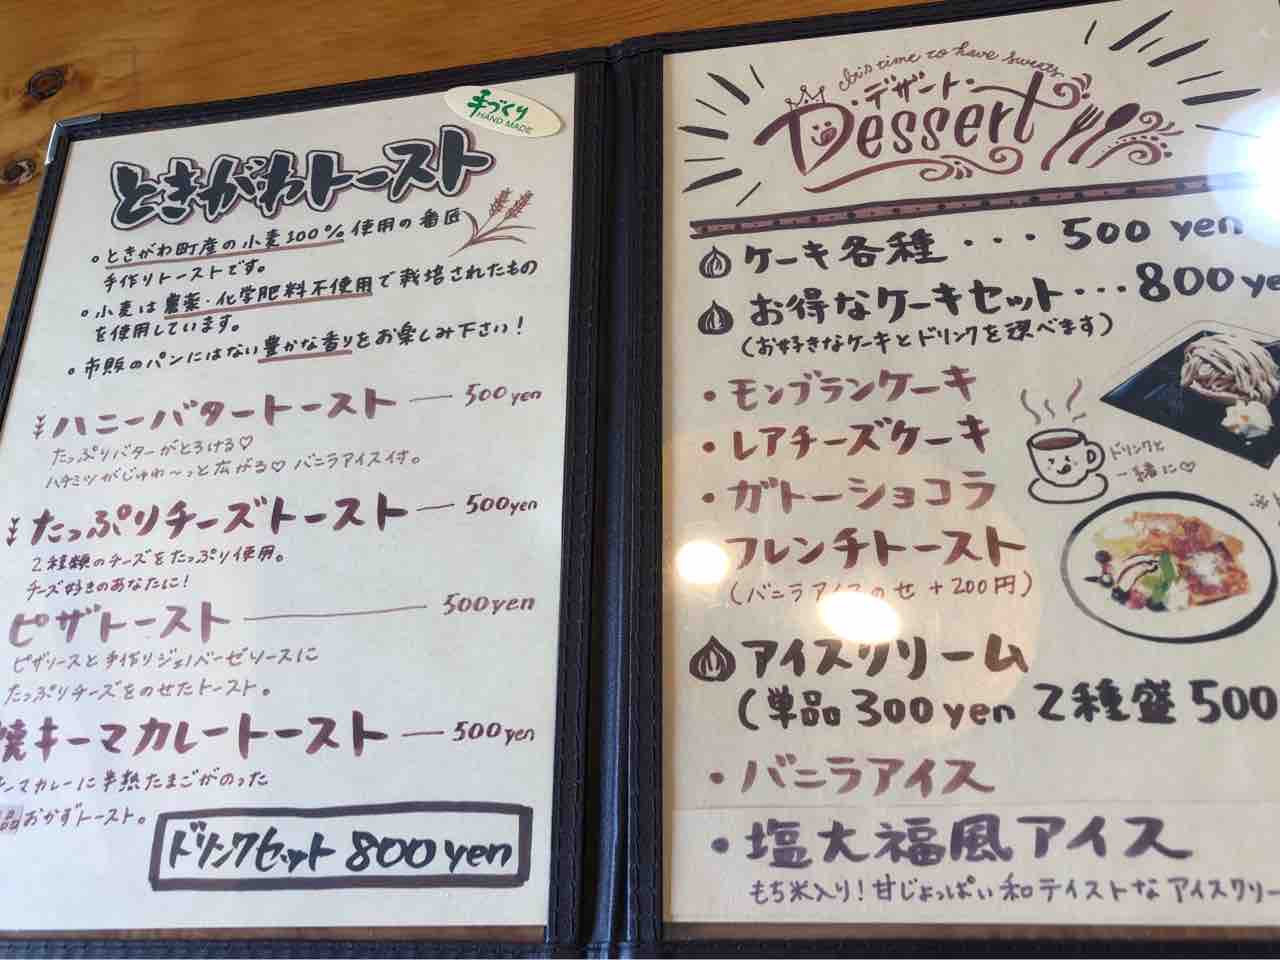 手づくり
HAND MADE
ときがわトースト
。ときがわ町産の小麦100%使用の番匠
手作りトーストです。
。小麦は農薬・化学肥料不使用で栽培されたもの
を使用しています。
。市販のパンにはない豊かな香りをお楽しみ下さい！
ハニーバタートースト ― 500yen
たっぷりバターがとろける♡
ハチミツがじゅわ〜っと広がる♡ バニラアイス付。
たっぷりチーズトースト ― 500yen
2種類のチーズをたっぷり使用。
チーズ好きのあなたに！
ピザトースト ― 500yen
ピザソースと手作りジェノバーゼソースに
たっぷりチーズをのせたトースト。
焼キーマカレートースト ― 500yen
ーマカレーに半熟たまごがのった
品おかずトースト。
ドリンクセット 800yen
It's time to have sweets
・デザート・
Dessert
ケーキ各種・・・500 yen
お得なケーキセット・・・800ye
(お好きなケーキとドリンクを選べます)
・モンブランケーキ
・レアチーズケーキ
・ガトーショコラ
フレンチトースト
(バニラアイスのせ +200円)
ドリンクと
一緒に♡
アイスクリーム
(単品300yen 2種盛500
・バニラアイス
・塩大福風アイス
もち米入り！甘じょっぱい和テイストなアイスクリー